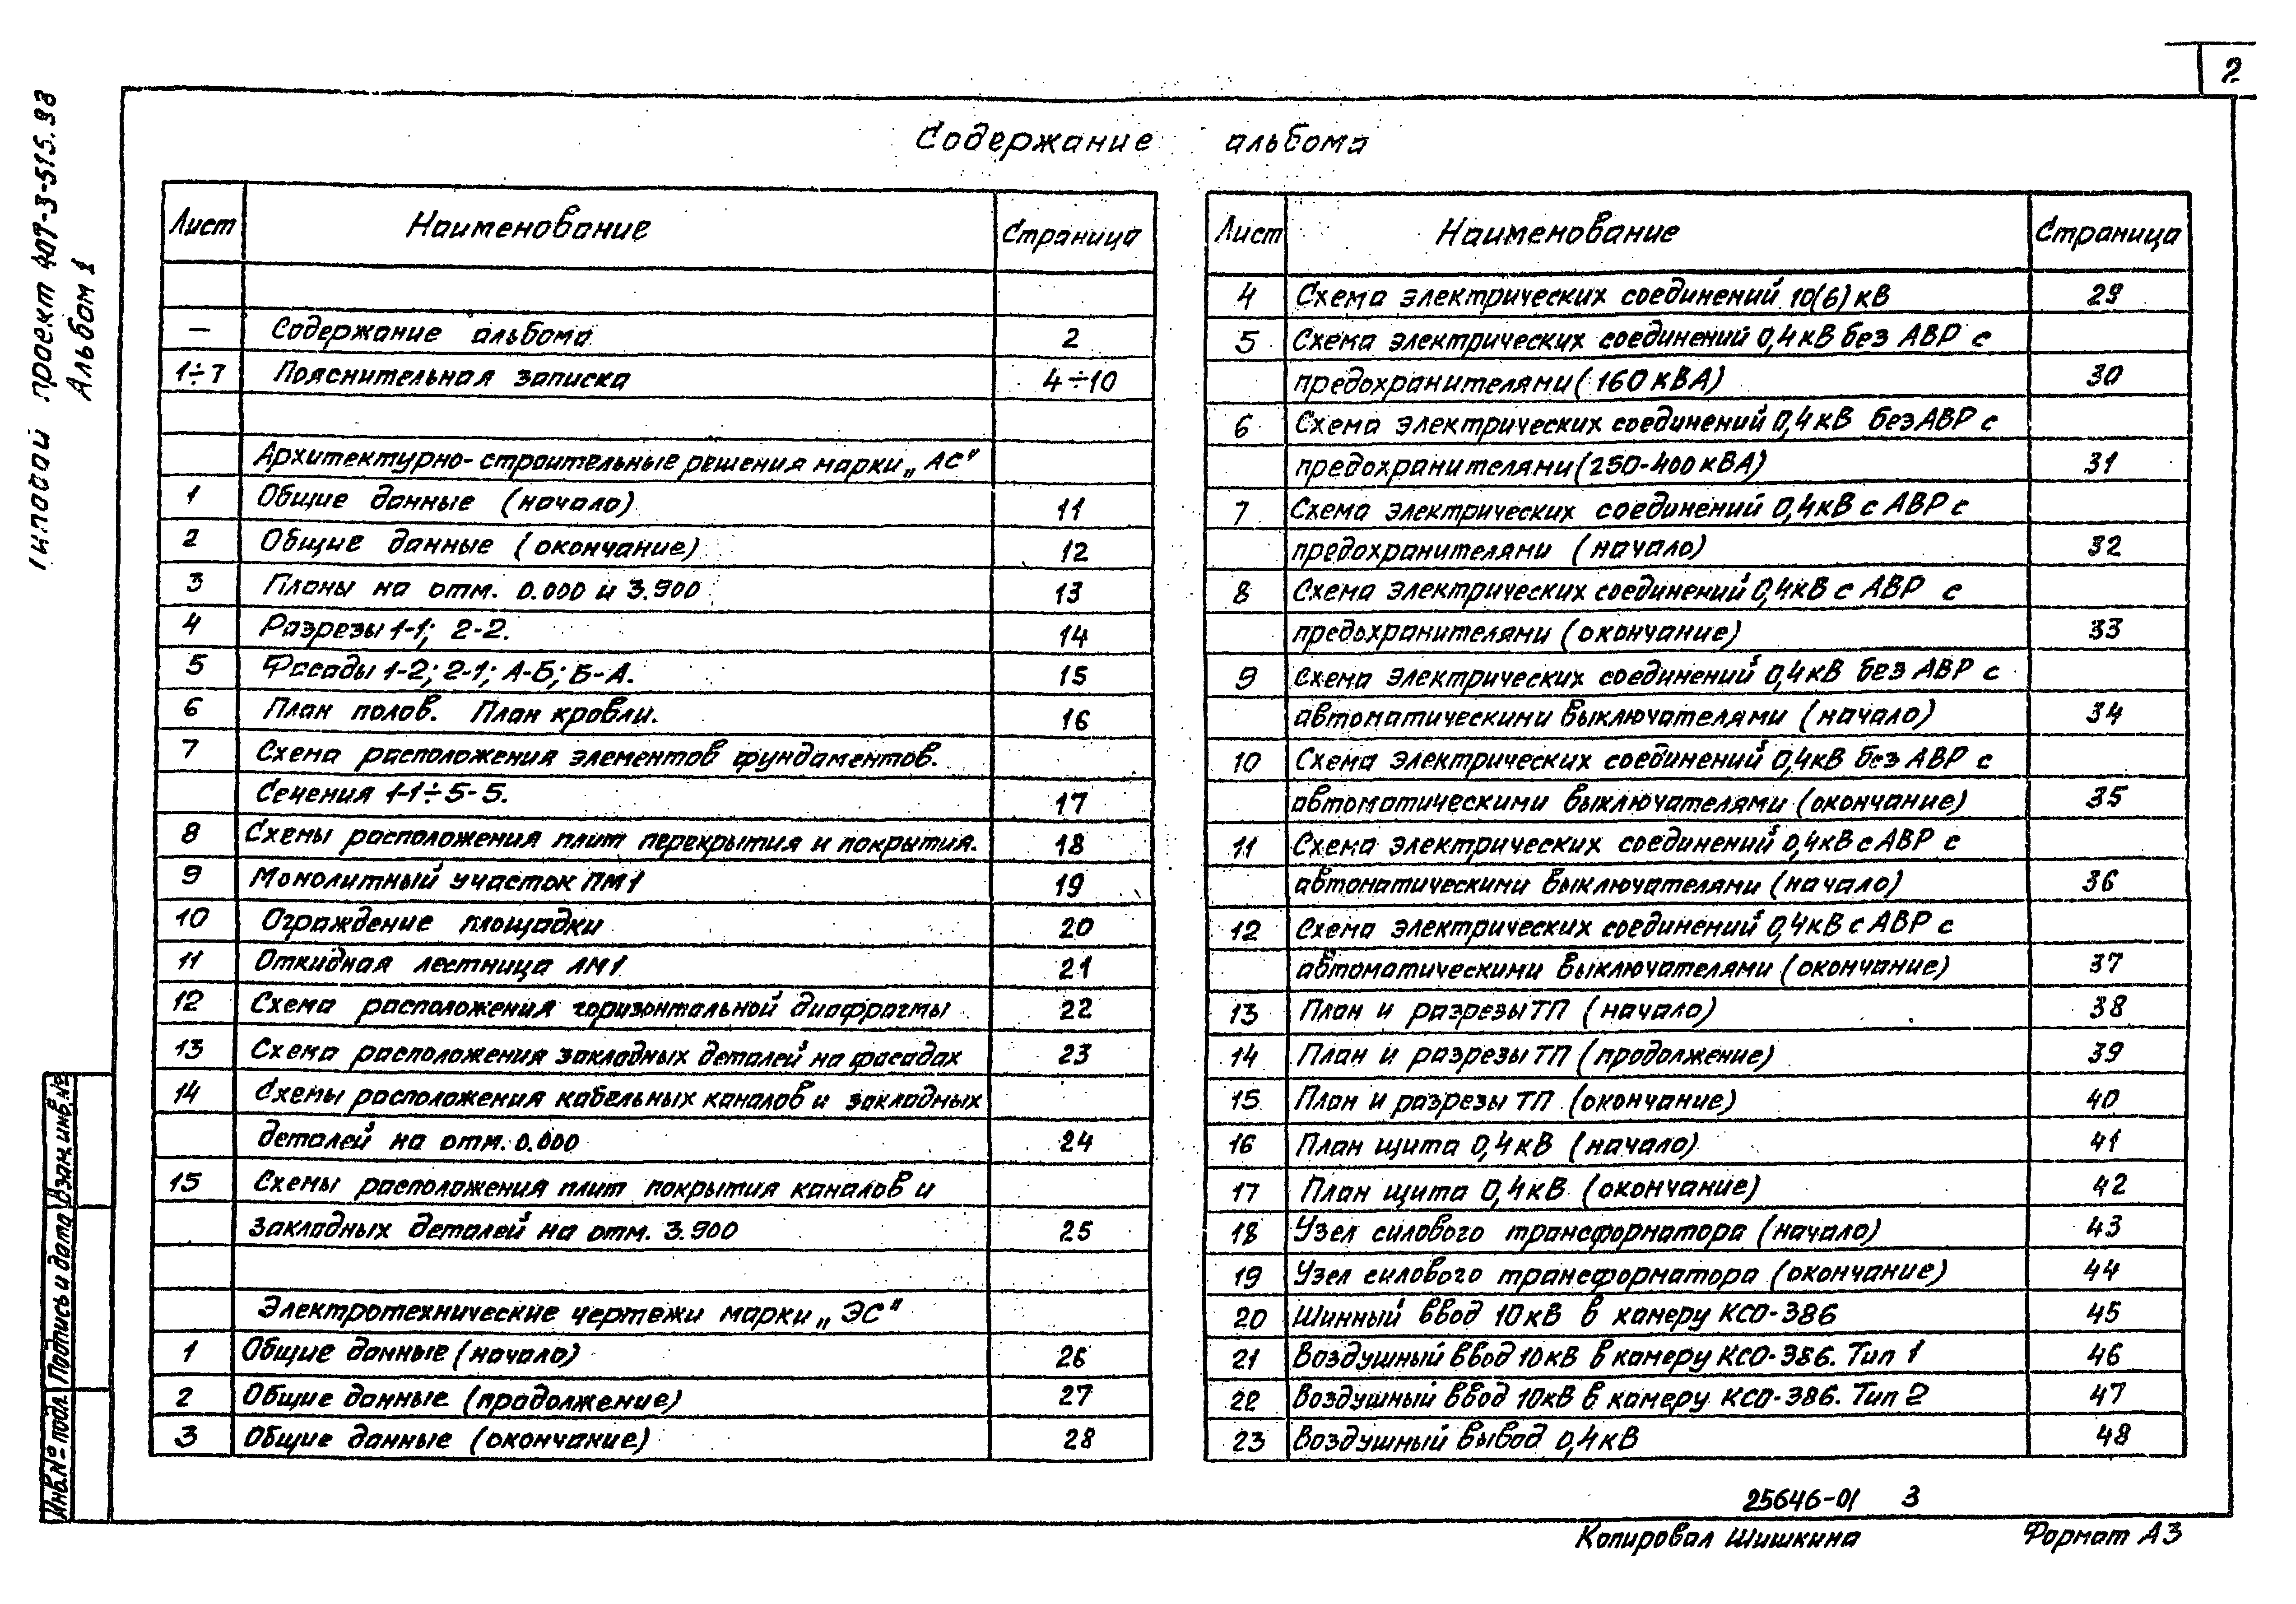 2
Типовой проект 407-3-515.93
Альбом 1
Содержание альбома
Лист Наименование Страница
— Содержание альбома 2
1÷7 Пояснительная записка 4÷10
Архитектурно-строительные решения марки „АС"
1 Общие данные (начало) 11
2 Общие данные (окончание) 12
3 Планы на отм. 0.000 и 3.900 13
4 Разрезы 1-1; 2-2. 14
5 Фасады 1-2; 2-1; А-Б; Б-А. 15
6 План полов. План кровли. 16
7 Схема расположения элементов фундаментов.
Сечения 1-1÷5-5. 17
8 Схемы расположения плит перекрытия и покрытия. 18
9 Монолитный участок ПМ1 19
10 Ограждение площадки 20
11 Откидная лестница ЛМ1 21
12 Схема расположения горизонтальной диафрагмы 22
13 Схема расположения закладных деталей на фасадах 23
14 Схемы расположения кабельных каналов и закладных
деталей на отм. 0.000 24
15 Схемы расположения плит покрытия каналов и
закладных деталей на отм. 3.900 25
Электротехнические чертежи марки „ЭС"
1 Общие данные (начало) 26
2 Общие данные (продолжение) 27
3 Общие данные (окончание) 28
Лист Наименование Страница
4 Схема электрических соединений 10(6) кВ 29
5 Схема электрических соединений 0,4кВ без АВР с
предохранителями (160кВА) 30
6 Схема электрических соединений 0,4кВ без АВР с
предохранителями (250-400кВА) 31
7 Схема электрических соединений 0,4кВ с АВР с
предохранителями (начало) 32
8 Схема электрических соединений 0,4кВ с АВР с
предохранителями (окончание) 33
9 Схема электрических соединений 0,4кВ без АВР с
автоматическими выключателями (начало) 34
10 Схема электрических соединений 0,4кВ без АВР с
автоматическими выключателями (окончание) 35
11 Схема электрических соединений 0,4кВ с АВР с
автоматическими выключателями (начало) 36
12 Схема электрических соединений 0,4кВ с АВР с
автоматическими выключателями (окончание) 37
13 План и разрезы ТП (начало) 38
14 План и разрезы ТП (продолжение) 39
15 План и разрезы ТП (окончание) 40
16 План щита 0,4кВ (начало) 41
17 План щита 0,4кВ (окончание) 42
18 Узел силового трансформатора (начало) 43
19 Узел силового трансформатора (окончание) 44
20 Шинный ввод 10кВ в камеру КСО-386 45
21 Воздушный ввод 10кВ в камеру КСО-386. Тип 1 46
22 Воздушный ввод 10кВ в камеру КСО-386. Тип 2 47
23 Воздушный вывод 0,4кВ 48
Инв.№ подл. Подпись и дата Взам.инв.№
25646-01 3
Копировал Шишкина Формат А3